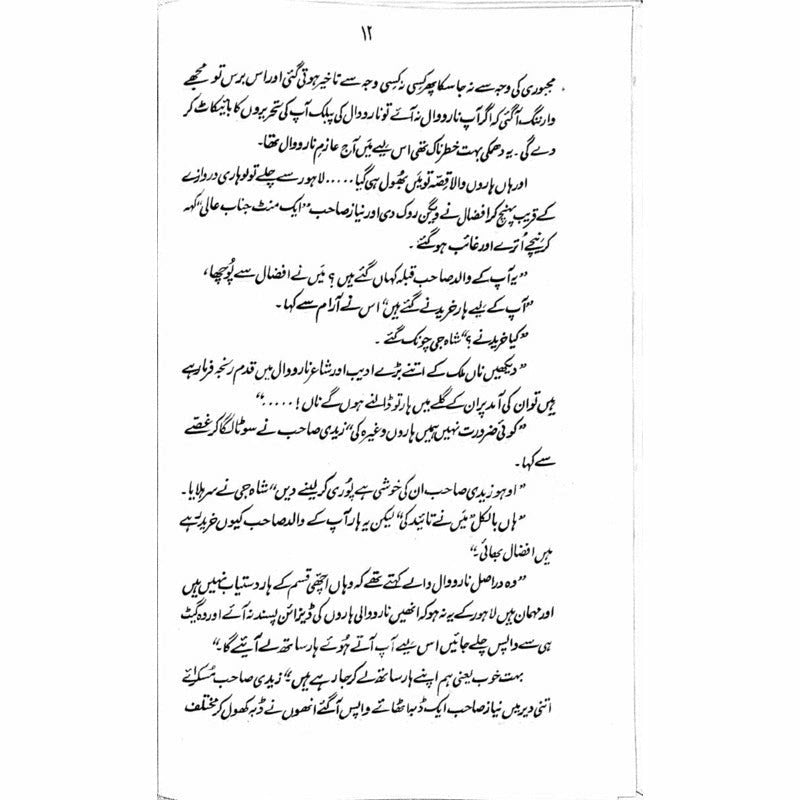 ۱۲
مجبوری کی وجہ سے نہ جا سکا پھر کسی نہ کسی وجہ سے تاخیر ہوتی گئی اور اس برس تو مجھے
وارننگ آگئی کہ اگر آپ نارووال نہ آئے تو نارووال کی پبلک آپ کی تحریروں کا بائیکاٹ کر
دے گی۔ یہ دھمکی بہت خطرناک تھی اس لیے میَں آج عازمِ نارووال تھا۔
اور ہاں ہاروں والا قِصّہ تو میَں بھُول ہی گیا ..... لاہور سے چلے تو لوہاری دروازے
کے قریب پہنچ کر افضال نے ویگن روک دی اور نیاز صاحب ”ایک منٹ جناب عالی“ کہہ
کر نیچے اُترے اور غائب ہو گئے۔
”یہ آپ کے والد صاحب قبلہ کہاں گئے ہیں؟ میَں نے افضال سے پُوچھا،
”آپ کے لیے ہار خریدنے گئے ہیں“ اس نے آرام سے کہا۔
”کیا خریدنے؟“ شاہ جی چونک گئے۔
”دیکھیں ناں ملک کے اتنے بڑے ادیب اور شاعر نارووال میں قدم رنجہ فرما رہے
ہیں تو ان کی آمد پر ان کے گلے میں ہار تو ڈالنے ہوں گے ناں! .....“
”کوئی ضرورت نہیں ہمیں ہاروں وغیرہ کی“ زیدی صاحب نے سوٹا لگا کر غصّے
سے کہا۔
”اوہو زیدی صاحب ان کی خوشی ہے پوُری کر لینے دیں“ شاہ جی نے سر ہلایا۔
”ہاں بالکل“ میَں نے تائید کی“ لیکن یہ ہار آپ کے والد صاحب کیوں خرید رہے
ہیں افضال بھائی۔“
”وہ دراصل نارووال والے کہتے تھے کہ وہاں اچھّی قسم کے ہار دستیاب نہیں ہیں
اور مہمان ہیں لاہور کے یہ نہ ہو کہ انھیں نارووالی ہاروں کی ڈیزائن پسند نہ آئے اور وہ گیٹ
ہی سے واپس چلے جائیں اس لیے آپ آتے ہُوئے ہار ساتھ لے آئیے گا۔“
بہت خوب یعنی ہم اپنے ہار ساتھ لے کر جا رہے ہیں؛“ زیدی صاحب مُسکرائے
اتنی دیر میں نیاز صاحب ایک ڈبہ اٹھائے واپس آگئے انھوں نے ڈبہ کھول کر مختلف